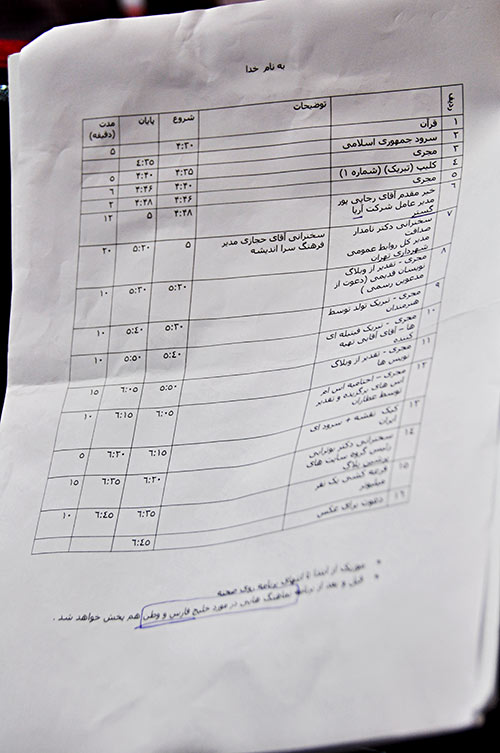 به نام خدا
ردیف توضیحات شروع پایان مدت (دقیقه)
۱ قرآن ۴:۳۰ ۵
۲ سرود جمهوری اسلامی ۴:۳۵
۳ مجری ۴:۳۵ ۴:۴۰ ۵
۴ کلیپ (تبریک) (شماره ۱) ۴:۴۰ ۴:۴۶ ۶
۵ مجری ۴:۴۶ ۴:۴۸ ۲
۶ خیر مقدم آقای رجایی پور
مدیر عامل شرکت آریا
گستر ۴:۴۸ ۵ ۱۲
۷ سخنرانی دکتر نامدار
صداقت
مدیر کل روابط عمومی
شهرداری تهران
سخنرانی آقای حجازی مدیر
فرهنگ سرا اندیشه ۵ ۵:۲۰ ۲۰
۸ مجری - تقدیر از وبلاگ
نویسان قدیمی (دعوت از
مدعوین رسمی) ۵:۲۰ ۵:۳۰ ۱۰
۹ مجری - تبریک تولد توسط
هنرمندان ۵:۳۰ ۵:۴۰ ۱۰
۱۰ مجری - تبریک فیتیله ای
ها - آقای آقایی تهیه
کننده ۵:۴۰ ۵:۵۰ ۱۰
۱۱ مجری - تقدیر از وبلاگ
نویس ها ۵:۵۰ ۶:۰۵ ۱۵
۱۲ مجری - اختتامیه اس ام
اس های برگزیده و تقدیر
توسط عطاران ۶:۰۵ ۶:۱۵ ۱۰
۱۳ کیک نقشه + سرود ای
ایران ۶:۱۵ ۶:۲۰ ۵
۱۴ سخنرانی دکتر بوترابی
رئیس گروه سایت های
پرشین بلاگ ۶:۲۰ ۶:۳۵ ۱۵
۱۵ قرعه کشی یک نفر
میلیونر ۶:۳۵ ۶:۴۵ ۱۰
۱۶ دعوت برای عکس ۶:۴۵
• موزیک از ابتدا تا انتهای برنامه روی صحنه
• قبل و بعد از برنامه نماهنگ هایی در مورد خلیج فارس و وطن هم پخش خواهد شد .